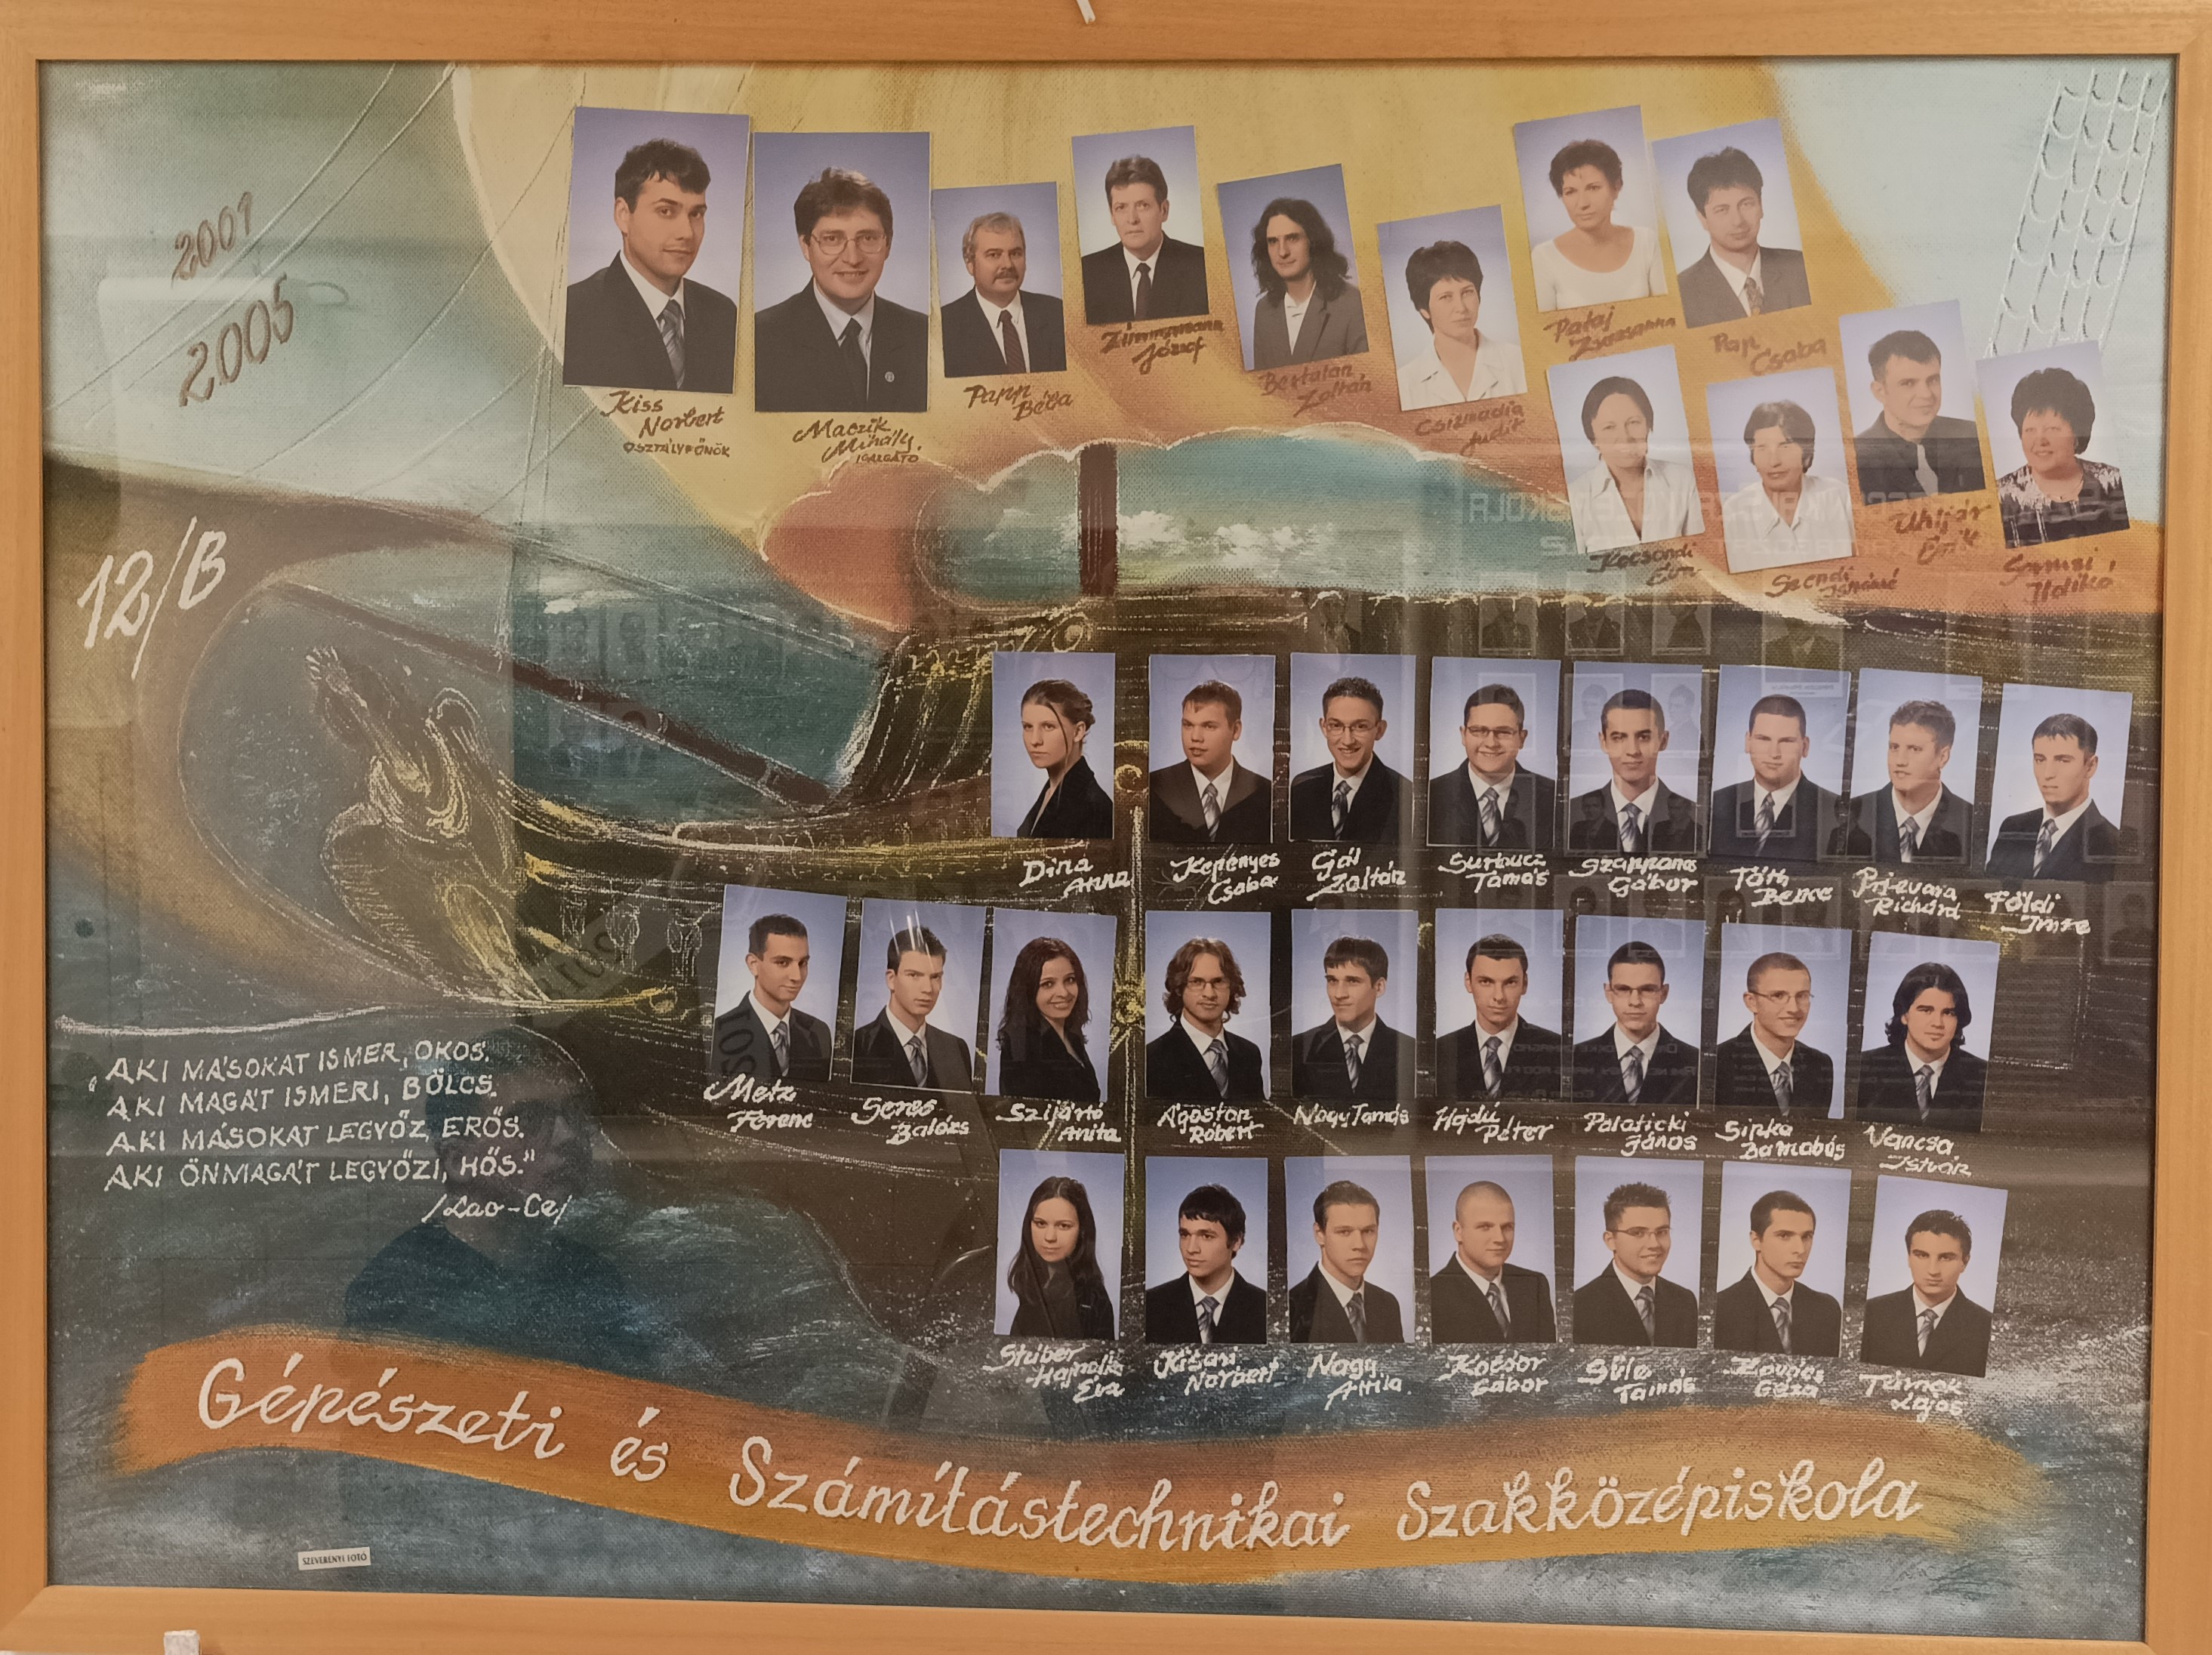 2001
2005
12/B
Kiss
Norbert
OSZTÁLYFŐNÖK
Maczik
Mihály
IGAZGATÓ
Papp
Béla
Zimmermann
József
Bertalan
Zoltán
Csizmadia
Judit
Pataj
Zsuzsanna
Pap
Csaba
Kocsondi
Éva
Szendi
Uhljár
Erik
Ildikó
Dina
Anna
Kepenyes
Csaba
Gál
Zoltán
Surbucz
Tamás
Szappanos
Gábor
Tóth
Bence
Prievara
Richárd
Földi
Imre
Metz
Ferenc
Seres
Balázs
Szijártó
Anita
Ágoston
Róbert
Nagy Tamás
Hajdú
Péter
Palaticki
János
Sipka
Barnabás
Vancsa
István
Stúber
Hajnalka
Éva
Norbert
Nagy
Attila
Kocsor
Gábor
Süle
Tamás
Kovács
Géza
Lajos
"AKI MÁSOKAT ISMER, OKOS.
AKI MAGÁT ISMERI, BÖLCS.
AKI MÁSOKAT LEGYŐZ, ERŐS.
AKI ÖNMAGÁT LEGYŐZI, HŐS."
/Lao-Ce/
Gépészeti és Számítástechnikai Szakközépiskola
SZEVERÉNYI FOTÓ